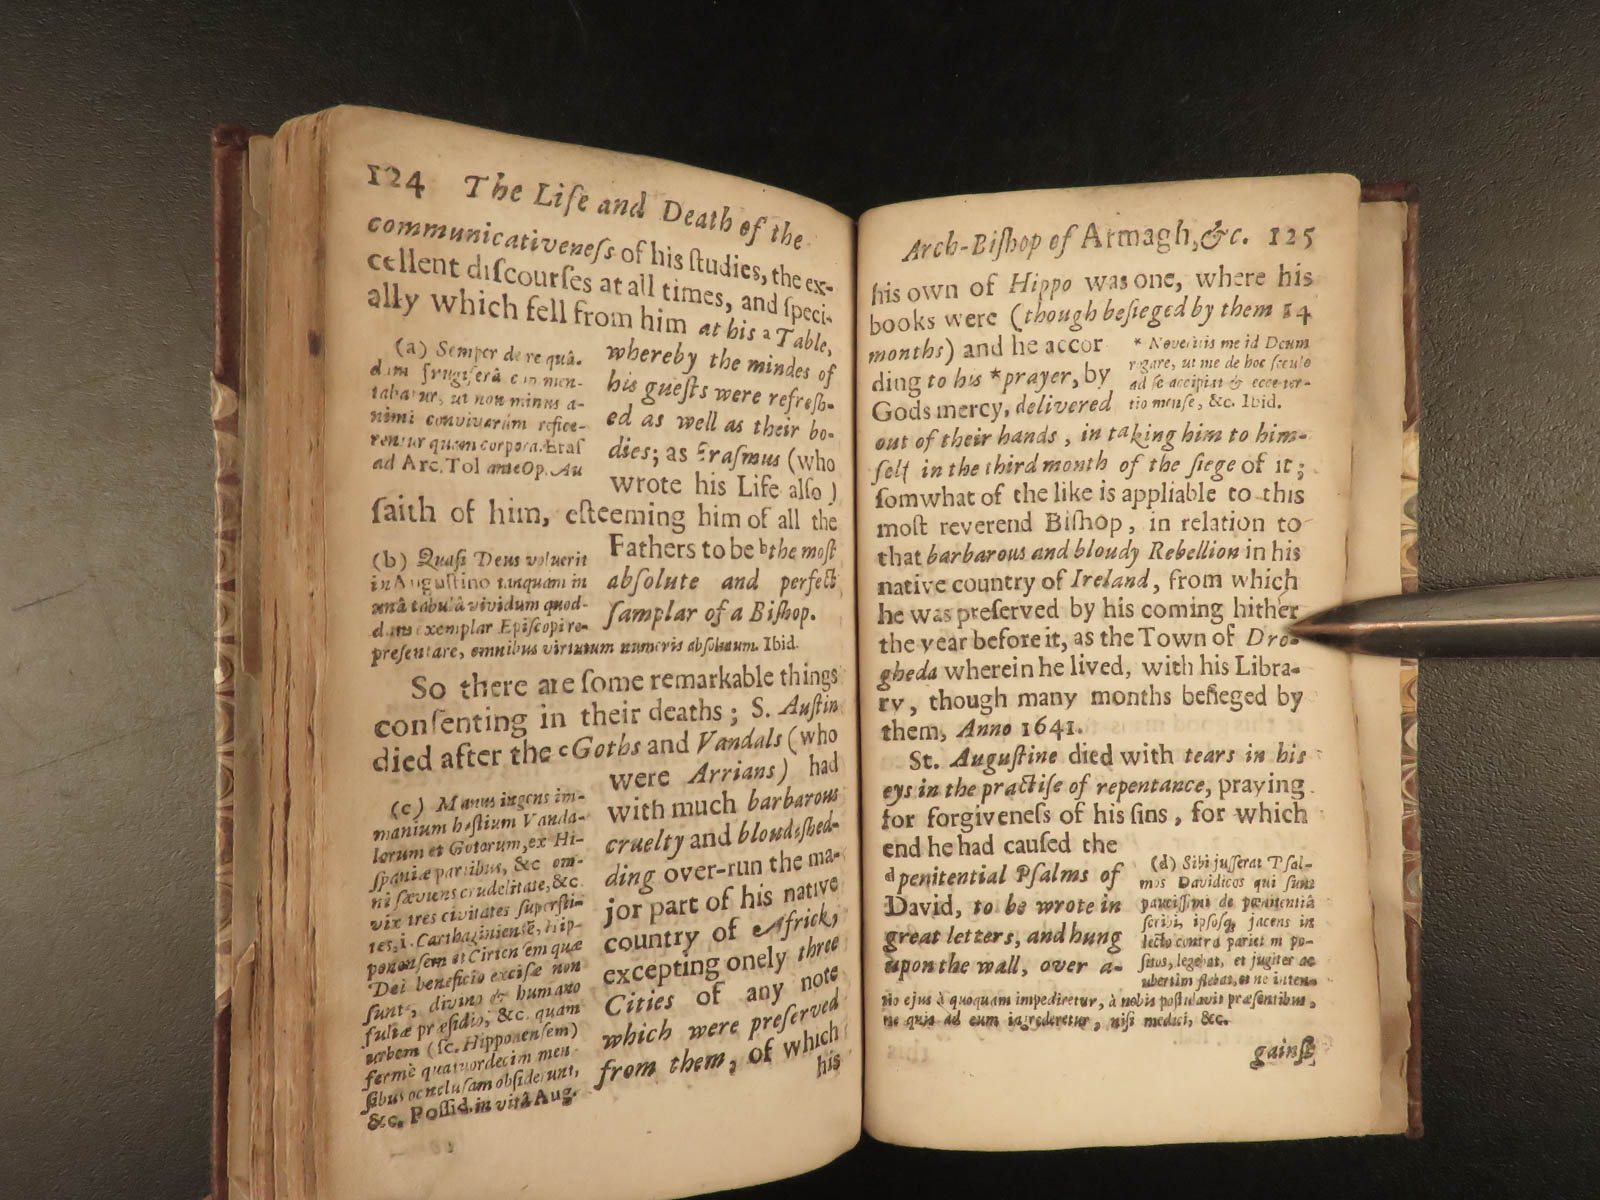 124 The Life and Death of the
communicativeneſs of his ſtudies, the ex-
cellent diſcourſes at all times, and ſpeci-
ally which fell from him at his a Table,
whereby the mindes of
his gueſts were refreſh-
ed as well as their bo-
dies; as Eraſmus (who
wrote his Life alſo)
(a) Semper de re quâ-
dam frugiferâ commen-
tabatur, ut non minus a-
nimi convivarum refice-
rentur quam corpora. Eraſ
ad Arc. Tol ante Op. Au
ſaith of him, eſteeming him of all the
Fathers to be b the moſt
abſolute and perfect
ſamplar of a Biſhop.
(b) Quaſi Deus voluerit
in Auguſtino tanquam in
unâ tabulâ vividum quod-
dam exemplar Epiſcopi re-
preſentare, omnibus virtutum numeris abſolutum. Ibid.
So there are ſome remarkable things
conſenting in their deaths; S. Auſtin
died after the c Goths and Vandals (who
were Arrians) had
with much barbarous
cruelty and bloudſhed-
ding over-run the ma-
jor part of his native
country of Africk,
excepting onely three
Cities of any note
which were preſerved
from them, of which
(c) Manus ingens im-
manium hoſtium Vanda-
lorum et Gotorum, ex Hi-
ſpaniæ partibus, &c om-
ni sæviens crudelitate, &c.
vix tres civitates ſuperſti-
tes, i. Carthaginienſe, Hip-
ponenſem et Cirtenſem quæ
Dei beneficio exciſæ non
ſunt, divino & humano
fultæ præſidio, &c. quam
urbem (ſc. Hipponenſem)
fermè quatuordecim men-
ſibus concluſam obſiderunt,
&c. Poſſid. in vitâ Aug.
his
Arch-Biſhop of Armagh, &c. 125
his own of Hippo was one, where his
books were (though beſieged by them 14
months) and he accor
ding to his * prayer, by
Gods mercy, delivered
* Noveritis me id Deum
rogare, ut me de hoc ſeculo
ad ſe accipiat &
tio menſe, &c. Ibid.
out of their hands, in taking him to him-
ſelf in the third month of the ſiege of it;
ſomwhat of the like is appliable to this
moſt reverend Biſhop, in relation to
that barbarous and bloudy Rebellion in his
native country of Ireland, from which
he was preſerved by his coming hither
the year before it, as the Town of Dro-
gheda wherein he lived, with his Libra-
ry, though many months beſieged by
them, Anno 1641.
St. Auguſtine died with tears in his
eys in the practiſe of repentance, praying
for forgiveneſs of his ſins, for which
end he had cauſed the
d penitential Pſalms of
David, to be wrote in
great letters, and hung
upon the wall, over a-
(d) Sibi juſſerat Pſal-
mos Davidicos qui ſunt
pauciſſimi de pœnitentiâ
ſcribi, ipſoſq; jacens in
lecto contra pariet m po-
ſitos, legebat, et jugiter ac
ubertim flebat, et ne inten-
tio ejus à quoquam impediretur, à nobis poſtulavit præſentibus,
ne quis ad eum ingrederetur, niſi medici, &c.
gainſt